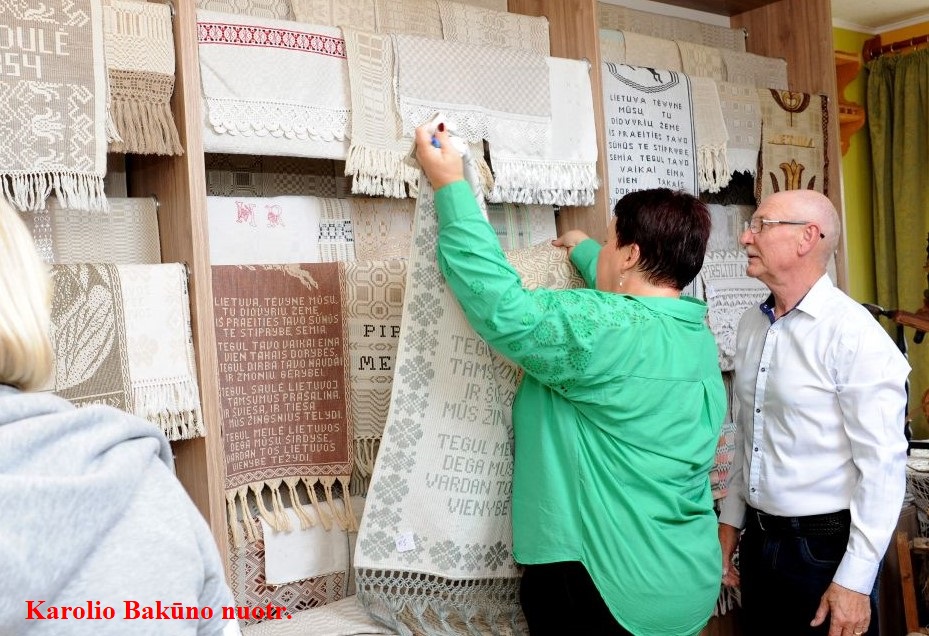 OULĖ
54
LIETUVA TĖVYNE
MŪSŲ TU
DIDVYRIŲ ŽEME
IŠ PRAEITIES TAVO
SŪNŪS TE STIPRYBĘ
SEMIA TEGUL TAVO
VAIKAI EINA
VIEN TAKAIS
LIETUVA, TĖVYNE MŪSŲ,
TU DIDVYRIŲ ŽEME
IŠ PRAEITIES TAVO SŪNŪS
TE STIPRYBĘ SEMIA
TEGUL TAVO VAIKAI EINA
VIEN TAKAIS DORYBĖS,
TEGUL DIRBA TAVO NAUDAI
IR ŽMONIŲ GĖRYBEI
TEGUL SAULĖ LIETUVOJ
TAMSUMUS PRAŠALINA,
IR ŠVIESA, IR TIESA
MŪS ŽINGSNIUS TELYDI.
TEGUL MEILĖ LIETUVOS
DEGA MŪSŲ ŠIRDYSE,
VARDAN TOS LIETUVOS
VIENYBĖ TEŽYDI.
PIR
ME
TEGUL
TAMSU
IR ŠV
MŪS ŽING
TEGUL MEI
DEGA MŪS
VARDAN TO
VIENYBĖ
Karolio Bakūno nuotr.